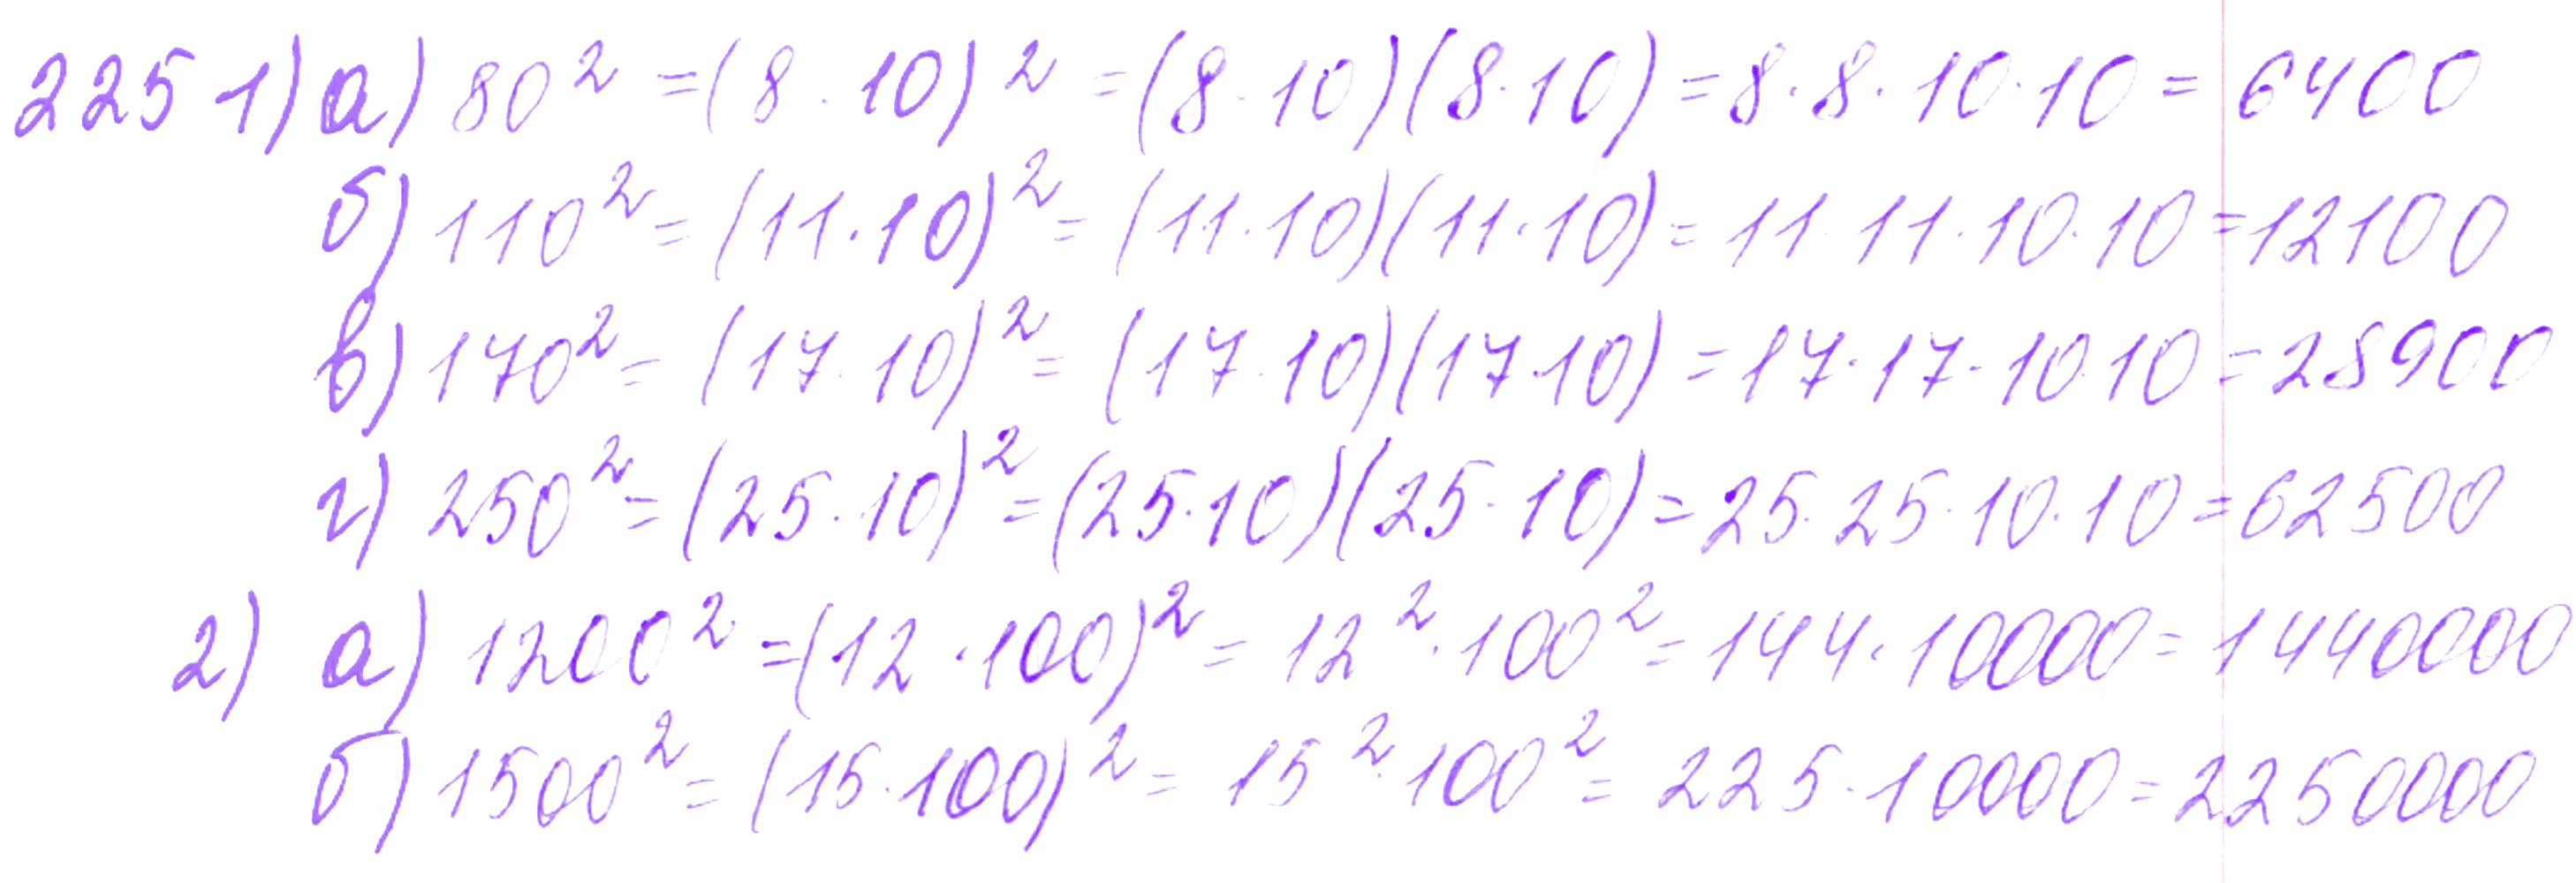 225 1) а) 80² = (8 · 10)² = (8 · 10)(8 · 10) = 8 · 8 · 10 · 10 = 6400
б) 110² = (11 · 10)² = (11 · 10)(11 · 10) = 11 · 11 · 10 · 10 = 12100
в) 170² = (17 · 10)² = (17 · 10)(17 · 10) = 17 · 17 · 10 · 10 = 28900
г) 250² = (25 · 10)² = (25 · 10)(25 · 10) = 25 · 25 · 10 · 10 = 62500
2) а) 1200² = (12 · 100)² = 12² · 100² = 144 · 10000 = 1440000
б) 1500² = (15 · 100)² = 15² · 100² = 225 · 10000 = 2250000